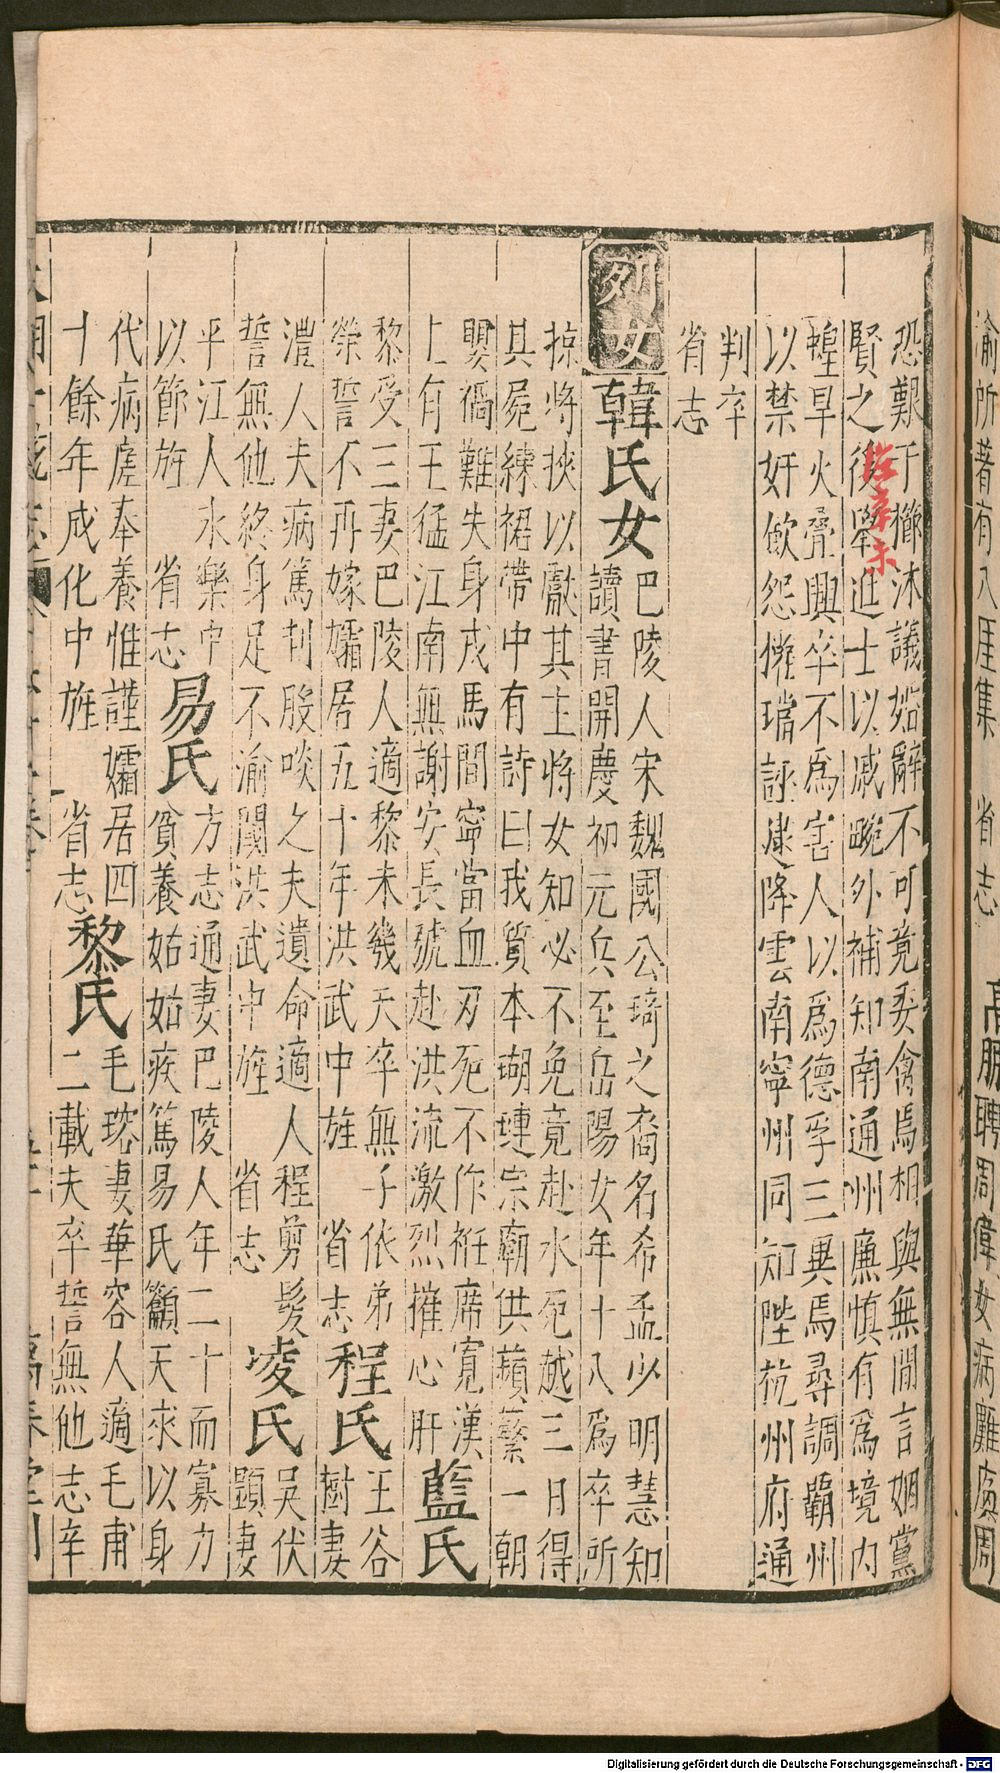 恐艱于櫛沐議姤辭不可竟委禽焉相與無間言姻黨
賢之後舉進士以戚畹外補知南通州廉慎有爲境内
蝗旱火疊興卒不爲害人以爲德孚三異焉尋調霸州
以禁奸歛怨權璫誣逮降雲南寧州同知陞杭州府通
判卒
省志
列女
韓氏女
巴陵人宋魏國公琦之裔名希孟少明慧知
讀書開慶初元兵至岳陽女年十八爲卒所
掠將挾以獻其主將女知必不免竟赴水死越三日得
其屍練裙帶中有詩曰我質本瑚璉宗廟供蘋蘩一朝
嬰禍難失身戎馬間寧當血刃死不作袵席寬漢
上有王猛江南無謝安長號赴洪流激烈摧心肝
藍氏
黎受三妻巴陵人適黎未幾天卒無子依弟
榮誓不再嫁孀居五十年洪武中旌 省志
程氏
王谷
樹妻
澧人夫病篤刲股啖之夫遺命適人程剪髮
誓無他終身足不渝閫洪武中旌 省志
凌氏
吳伏
顯妻
平江人永樂中
以節旌 省志
易氏
方志通妻巴陵人年二十而寡力
貧養姑姑疾篤易氏籲天求以身
代病瘥奉養惟謹孀居四
十餘年成化中旌 省志
黎氏
毛琬妻華容人適毛甫
二載夫卒誓無他志辛
渝所著有八厓集 省志 高
聘周偉女病難
周
在辛未
Digitalisierung gefördert durch die Deutsche Forschungsgemeinschaft - DFG